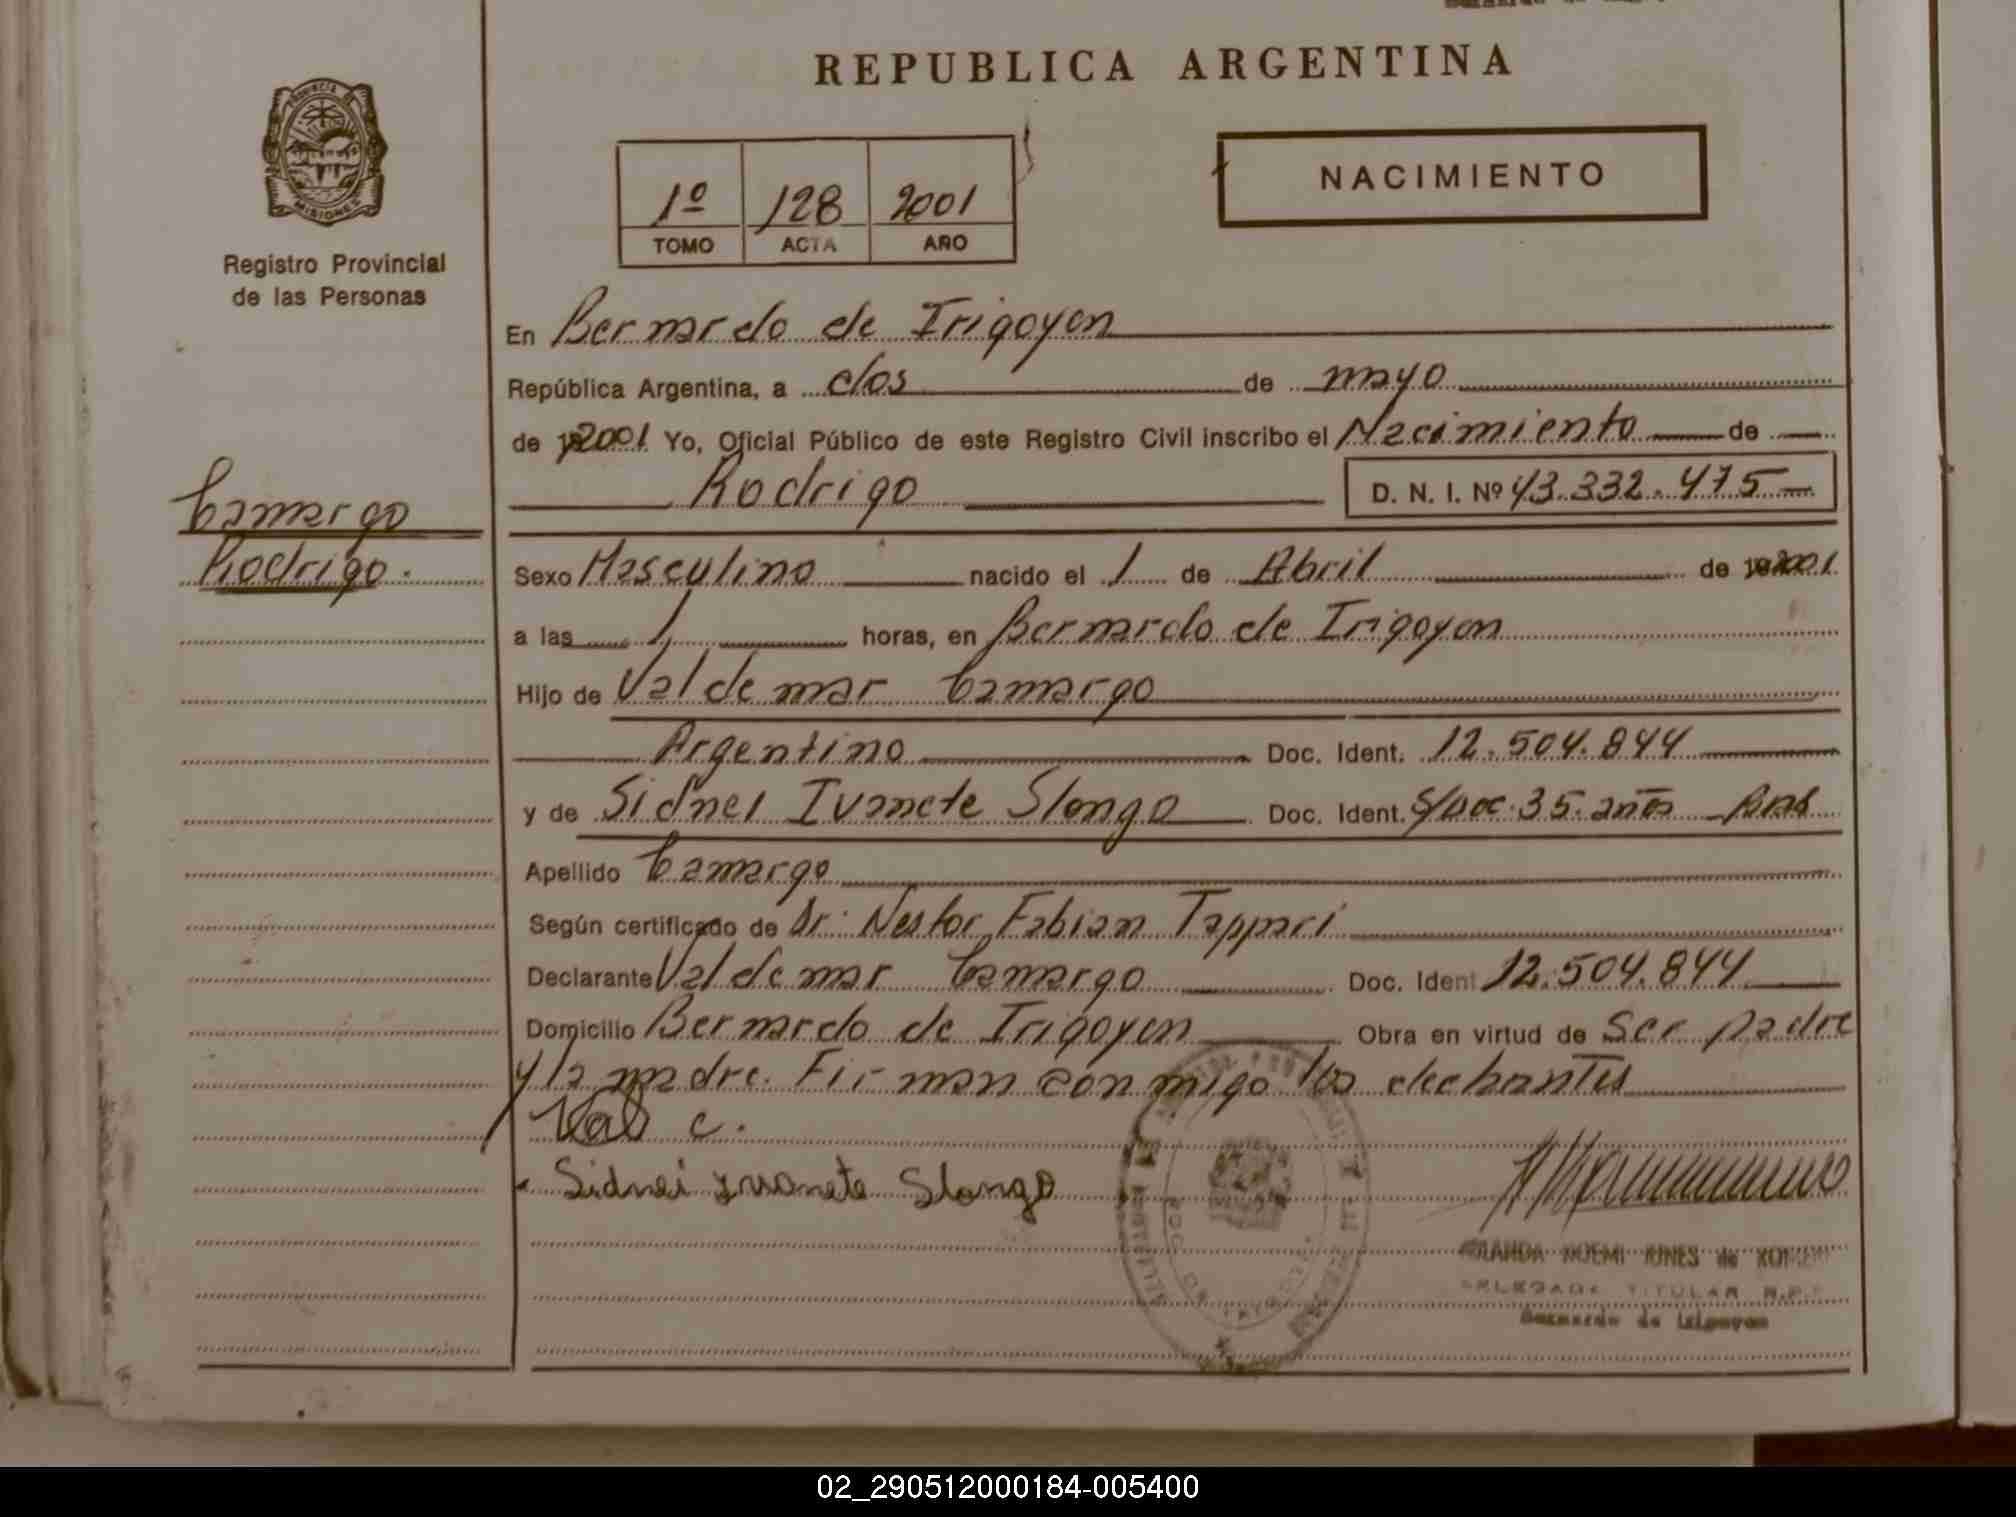 REPUBLICA ARGENTINA
PROVINCIA DE
MISIONES
Registro Provincial
de las Personas
1º 128 2001
TOMO ACTA AÑO
NACIMIENTO
En Bernardo de Irigoyen
República Argentina, a dos de mayo
de 2001 Yo, Oficial Público de este Registro Civil inscribo el Nacimiento de
Rodrigo D. N. I. Nº 43.332.475
Camargo
Rodrigo.
Sexo Masculino nacido el 1 de Abril de 2001
a las 1 horas, en Bernardo de Irigoyen
Hijo de Valdemar Camargo
Argentino Doc. Ident. 12.504.844
y de Sidnei Ivanete Slongo Doc. Ident. S/Doc. 35. años Bras
Apellido Camargo
Según certificado de Dr. Nestor Fabian Tappari
Declarante Valdemar Camargo Doc. Ident 12.504.844
Domicilio Bernardo de Irigoyen Obra en virtud de Ser padre
y la madre. Firman conmigo los
Val C.
Sidnei Ivanete Slongo
NOEMI de
DELEGADA TITULAR R.P.P
Bernardo de Irigoyen
02_290512000184-005400